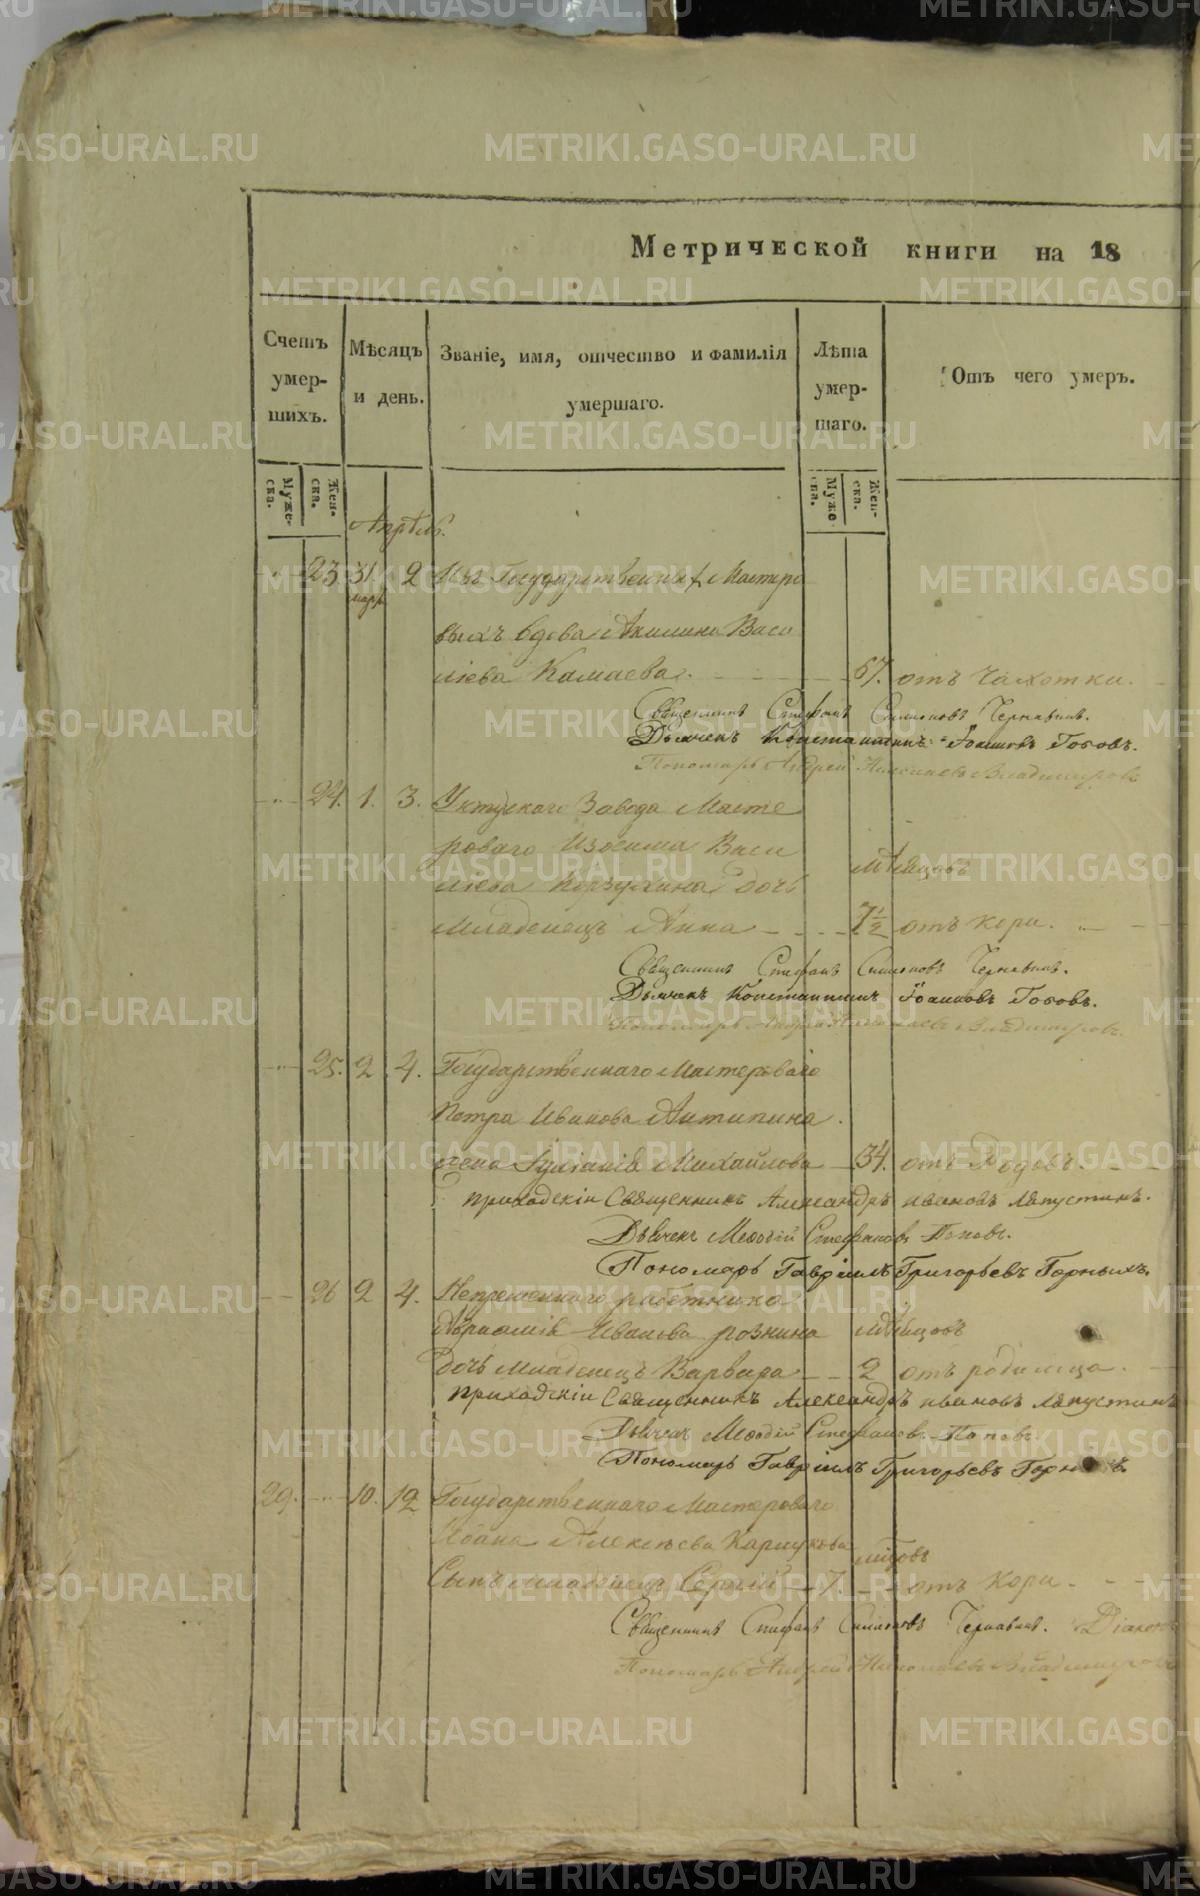 Метрической книги на 18
Счетъ умер-шихъ.
Мѣсяцъ и день.
Званіе, имя, отчество и фамилія умершаго.
Лѣта умер-шаго.
Отъ чего умеръ.
Муже-ска.
Жен-ска.
Муже-ска.
Жен-ска.
Апрѣль.
23. 31. 2 Изъ Государственныхъ Мастеро
марта
выхъ вдова Акилина Васи
лієва Камаева. 67. отъ чахотки.
Священникъ Стефанъ Симоновъ Чернавинъ.
Дьячекъ Константинъ Іоанновъ Гобовъ.
Пономарь Андрей Николаевъ Владимировъ
24. 1. 3. Уктускаго Завода Масте
роваго Изосима Васи
лієва Корзухина дочь мѣсяцовъ
Младенецъ Анна 7 1/2 отъ кори.
Священникъ Стефанъ Симоновъ Чернавинъ.
Дьячекъ Константинъ Іоанновъ Гобовъ.
Пономарь Андрей Николаевъ Владимировъ.
25. 2 4. Государственнаго Мастероваго
Петра Иванова Антипина.
жена Іуліанія Михайлова 34. отъ Родовъ.
Приходскій Священникъ Александръ Ивановъ Лапустинъ.
Дьячекъ Меѳодій Стефановъ Поповъ.
Пономарь Гавріилъ Григорьевъ Горныхъ.
26 2 4. Непременнаго работника
Иванова рознина мѣсяцовъ
дочь младенецъ Варвара 2 отъ родимца.
Приходскій Священникъ Александръ Ивановъ Лапустинъ
Дьячекъ Меѳодій Стефановъ Поповъ.
Пономарь Гавріилъ Григорьевъ Горныхъ.
29. 10. 12 Государственнаго Мастероваго
Іоана Алексѣева мѣсяцовъ
Сынъ младенецъ Сергий 7. отъ кори.
Священникъ Стефанъ Симоновъ Чернавинъ. Діаконъ
Пономарь Андрей Николаевъ Владимировъ
METRIKI.GASO-URAL.RU